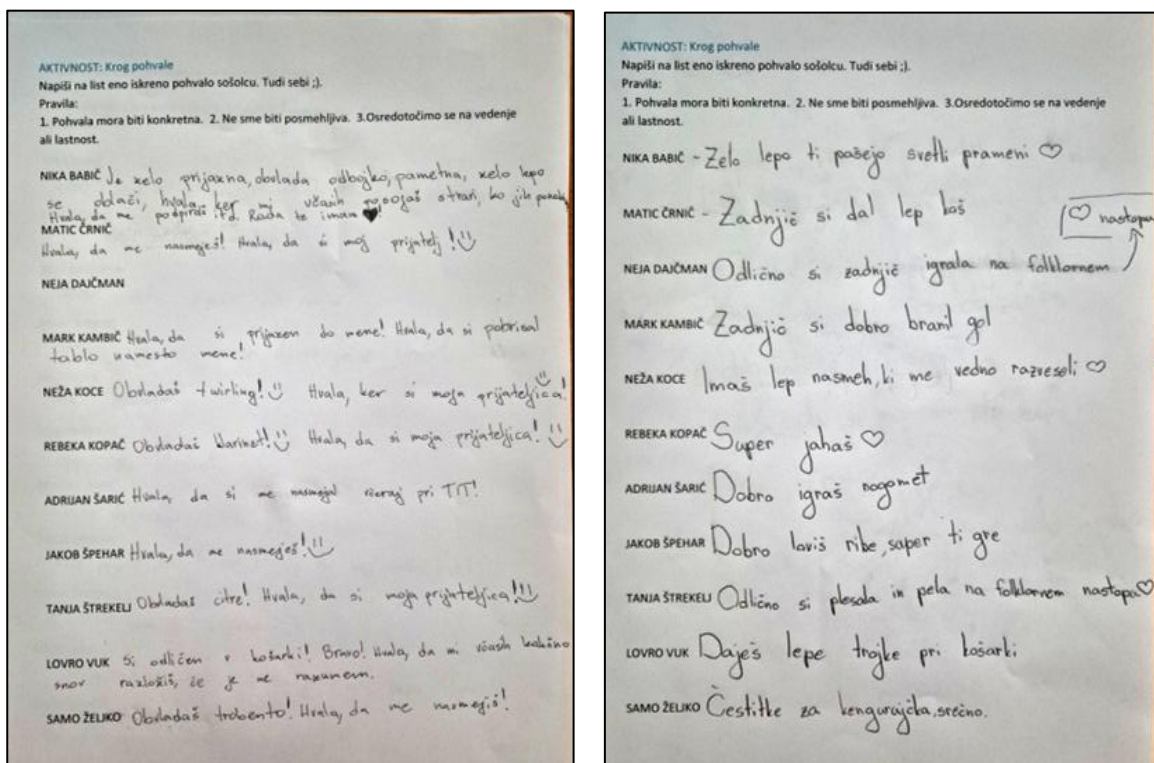 AKTIVNOST: Krog pohvale
Napiši na list eno iskreno pohvalo sošolcu. Tudi sebi ;).
Pravila:
1. Pohvala mora biti konkretna. 2. Ne sme biti posmehljiva. 3.Osredotočimo se na vedenje
ali lastnost.
NIKA BABIČ Je zelo prijazna, obvlada odbojko, pametna, zelo lepo
se oblači, hvala, ker mi včasih stvari, ko jih
Hvala, da me podpiraš itd. Rada te imam ♥
MATIC ČRNIČ
Hvala, da me nasmeješ! Hvala, da si moj prijatelj!
NEJA DAJČMAN
MARK KAMBIČ Hvala, da si prijazen do mene! Hvala, da si pobrisal
tablo namesto mene!
NEŽA KOCE Obvladaš twirling! Hvala, ker si moja prijateljica!
REBEKA KOPAČ Obvladaš klarinet! Hvala, da si moja prijateljica!
ADRIJAN ŠARIĆ Hvala, da si me nasmejal včeraj pri TIT!
JAKOB ŠPEHAR Hvala, da me nasmeješ!
TANJA ŠTREKELJ Obvladaš citre! Hvala, da si moja prijateljica!!!
LOVRO VUK Si odličen v košarki! Bravo! Hvala, da mi včasih kakšno
snov razložiš, če je ne razumem.
SAMO ŽELJKO Obvladaš trobento! Hvala, da me nasmejiš!
AKTIVNOST: Krog pohvale
Napiši na list eno iskreno pohvalo sošolcu. Tudi sebi ;).
Pravila:
1. Pohvala mora biti konkretna. 2. Ne sme biti posmehljiva. 3.Osredotočimo se na vedenje
ali lastnost.
NIKA BABIČ - Zelo lepo ti pašejo svetli prameni ♡
MATIC ČRNIČ - Zadnjič si dal lep koš
♡ nastopu
NEJA DAJČMAN Odlično si zadnjič igrala na folklornem
MARK KAMBIČ Zadnjič si dobro branil gol
NEŽA KOCE Imaš lep nasmeh, ki me vedno razveseli ♡
REBEKA KOPAČ Super jahaš ♡
ADRIJAN ŠARIĆ Dobro igraš nogomet
JAKOB ŠPEHAR Dobro loviš ribe, super ti gre
TANJA ŠTREKELJ Odlično si plesala in pela na folklornem nastopu ♡
LOVRO VUK Daješ lepe trojke pri košarki
SAMO ŽELJKO Čestitke za kengurajčka, srečno.